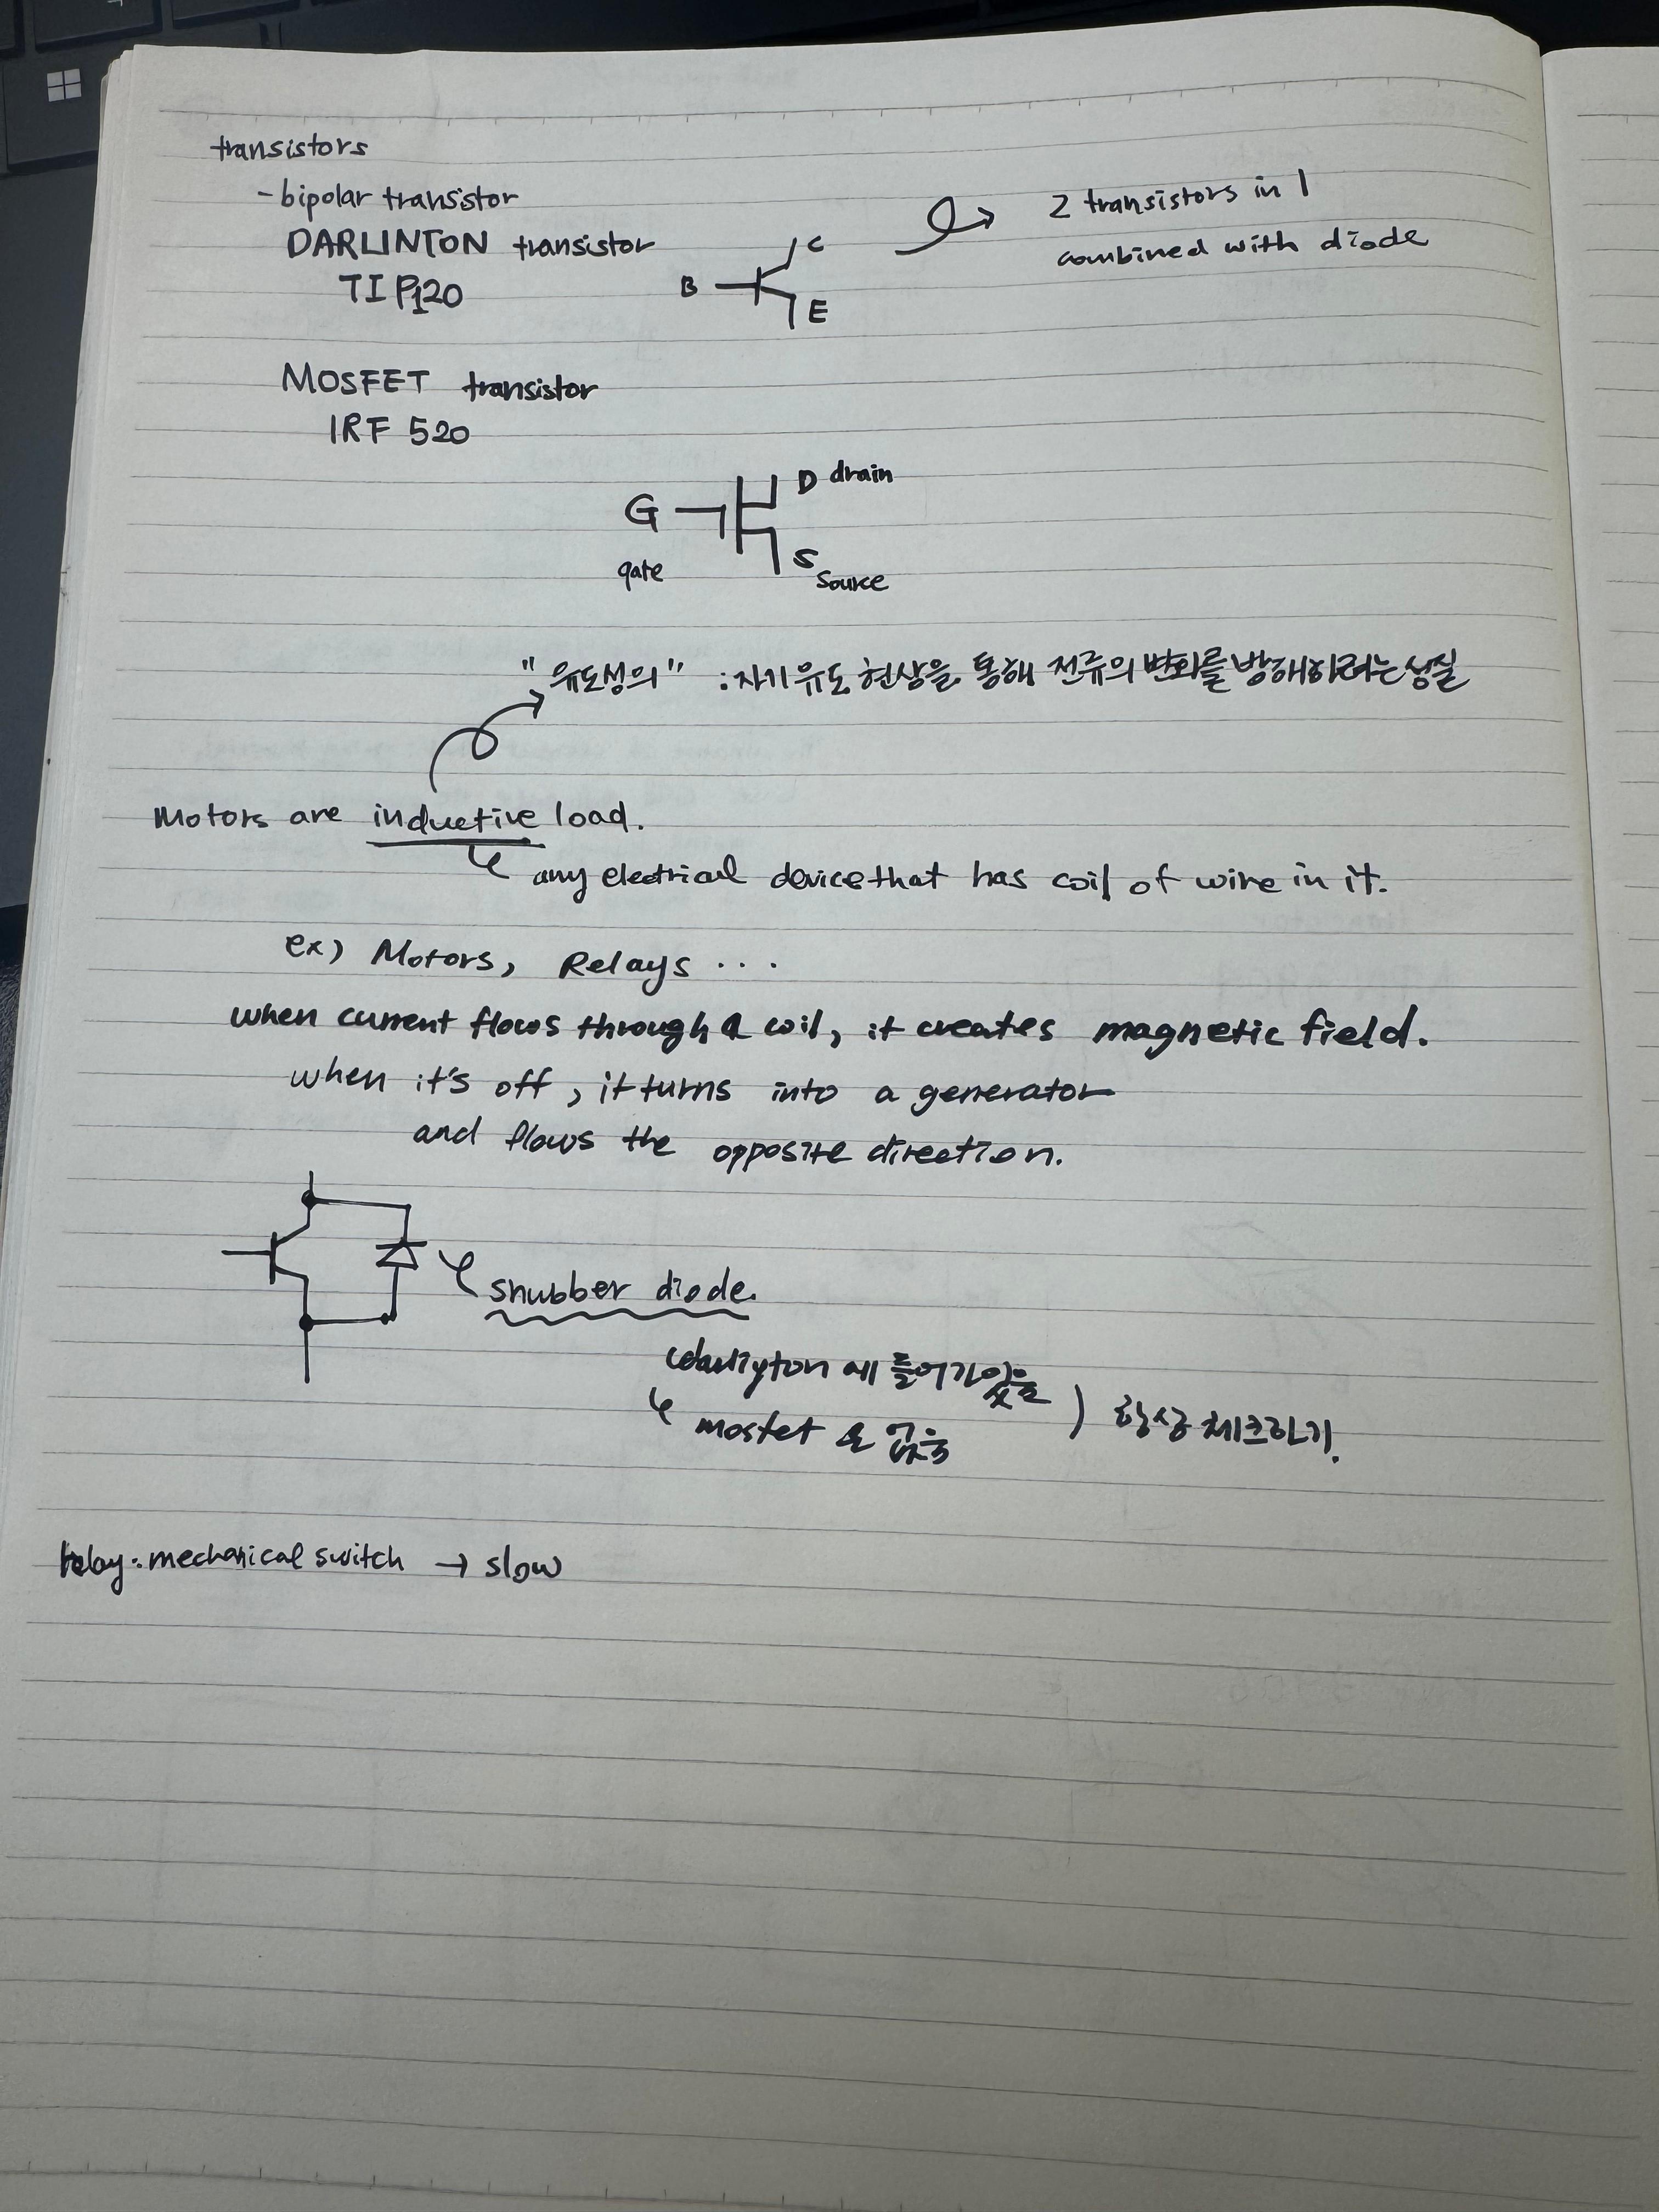 transistors
- bipolar transistor
DARLINTON transistor
TIP120
B
C
E
2 transistors in 1
combined with diode
MOSFET transistor
IRF 520
G
gate
D drain
S
Source
"유도성의" : 자기유도 현상을 통해 전류의 변화를 방해하려는 성질
Motors are inductive load.
any electrical device that has coil of wire in it.
ex) Motors, Relays ...
when current flows through a coil, it creates magnetic field.
when it's off, it turns into a generator
and flows the opposite direction.
snubber diode.
에 들어가있음
mosfet 은 없음
) 항상 체크하기.
relay : mechanical switch → slow